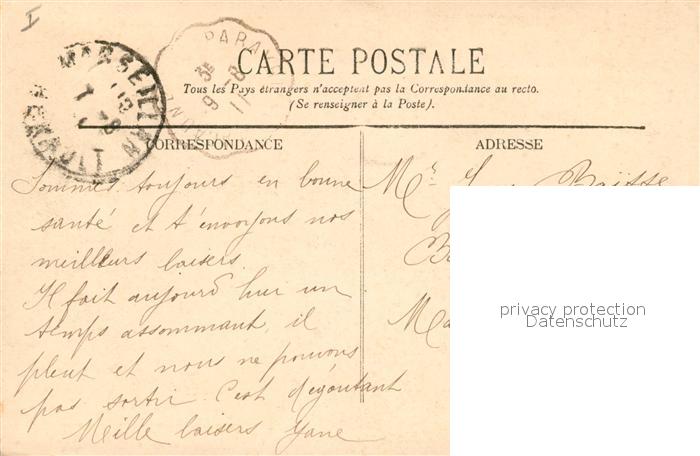 I
MARSEILLAN
HERAULT
7 -8
PARA
3E
9 -8
11
CARTE POSTALE
Tous les Pays étrangers n'acceptent pas la Correspondance au recto.
(Se renseigner à la Poste).
CORRESPONDANCE
Sommes toujours en bonne
santé et t'envoyons nos
meilleurs baisers.
Il fait aujourd'hui un
temps assommant, il
pleut et nous ne pouvons
pas sortir c'est dégoutant
Mille baisers Jane
ADRESSE
Mr
privacy protection
Datenschutz